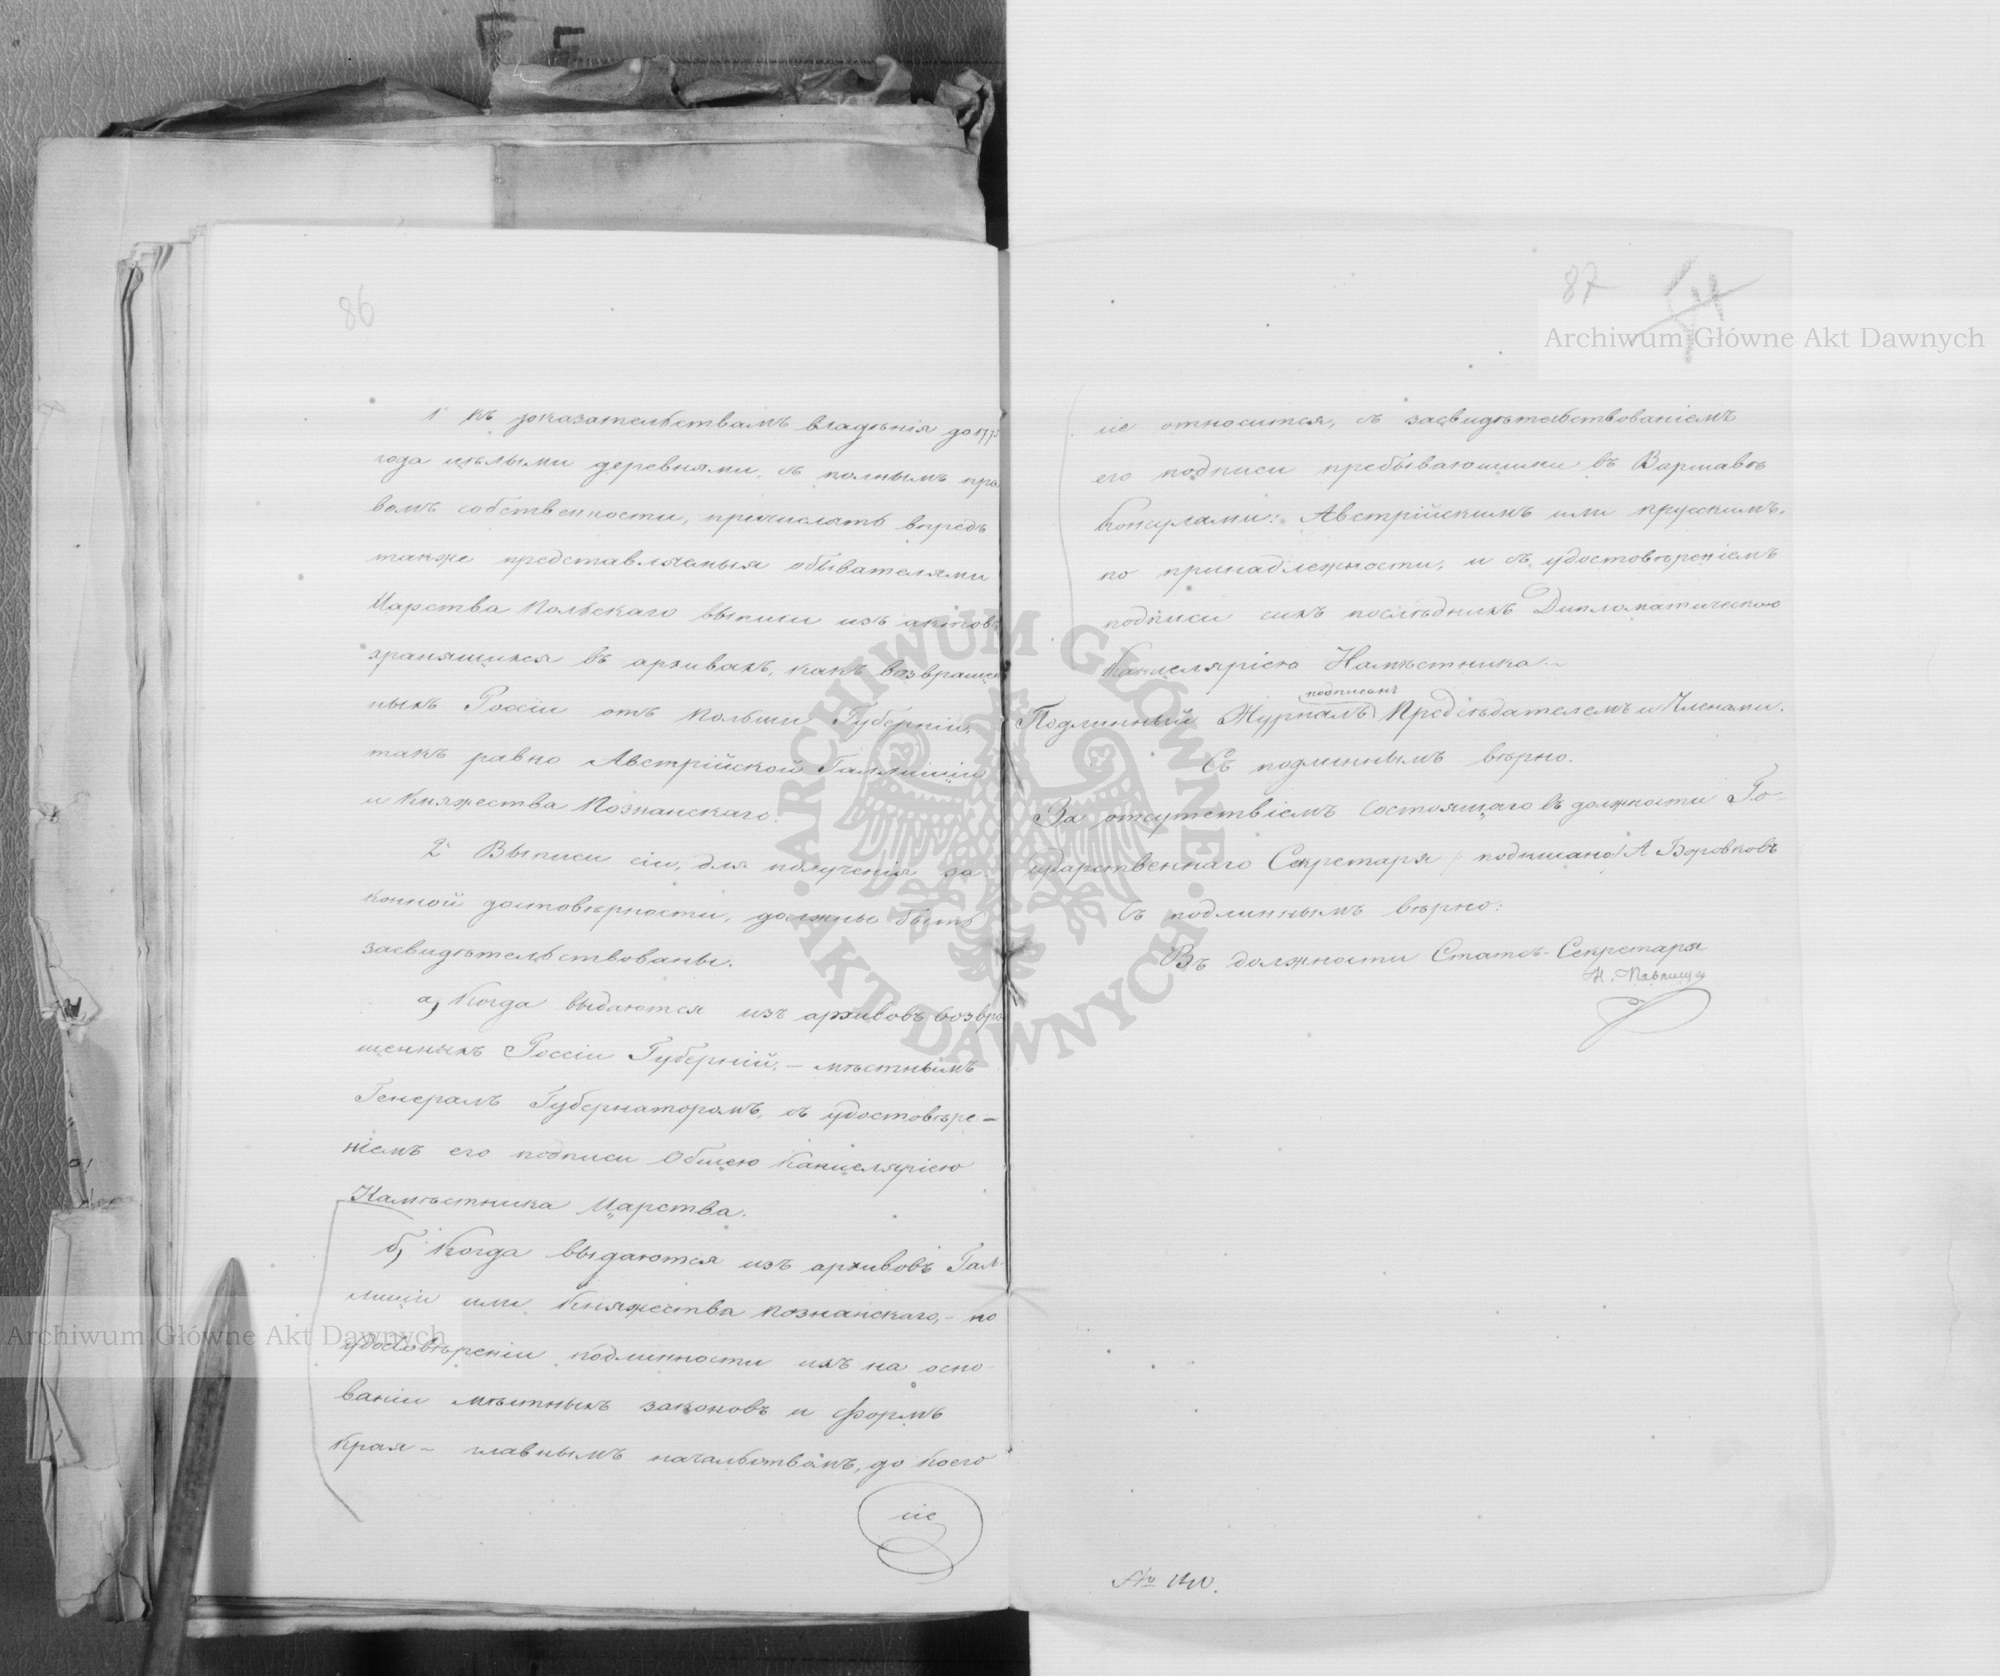 86
1. къ доказательствамъ владѣнія до 1775
года цѣлыми деревнями, съ полнымъ пра
вомъ собственности, причислять впредь
также представляемыя обывателями
Царства Польскаго выписи изъ актовъ
хранящихся въ архивахъ, какъ возвращен
ныхъ Россіи отъ Польши Губерній,
такъ равно Австрійской Галлиціи
и Княжества Познанскаго.
2. Выписи сіи, для полученія за
конной достовѣрности, должны быть
засвидѣтельствованы.
а, Когда выдаются изъ архивовъ возвра
щенныхъ Россіи Губерній, – мѣстнымъ
Генералъ Губернаторомъ, съ удостовѣре–
ніемъ его подписи Общею Канцеляріею
Намѣстника Царства.
б, Когда выдаются изъ архивовъ Гал
лиціи или Княжества Познанскаго, – по
удостовѣреніи подлинности ихъ на осно
ваніи мѣстныхъ законовъ и формъ
Края – главнымъ начальствомъ, до коего
сіе
87
сіе относится, съ засвидѣтельствованіемъ
его подписи пребывающими въ Варшавѣ
Консулами: Австрійскимъ или Прусскимъ,
по принадлежности, и съ удостовѣреніемъ
подписи сихъ послѣднихъ Дипломатическою
Канцеляріею Намѣстника. –
подписанъ
Подлинный Журналъ Предсѣдателемъ и Членами.
Съ подлиннымъ вѣрно.
За отсутствіемъ состоящаго въ должности Го–
сударственнаго Секретаря /подписано/ А Боровковъ
Съ подлиннымъ вѣрно:
Въ должности Статсъ-Секретаря
Н. Павлищ
№
Archiwum Główne Akt Dawnych
Archiwum Główne Akt Dawnych
ARCHIWUM GŁÓWNE
AKT DAWNYCH